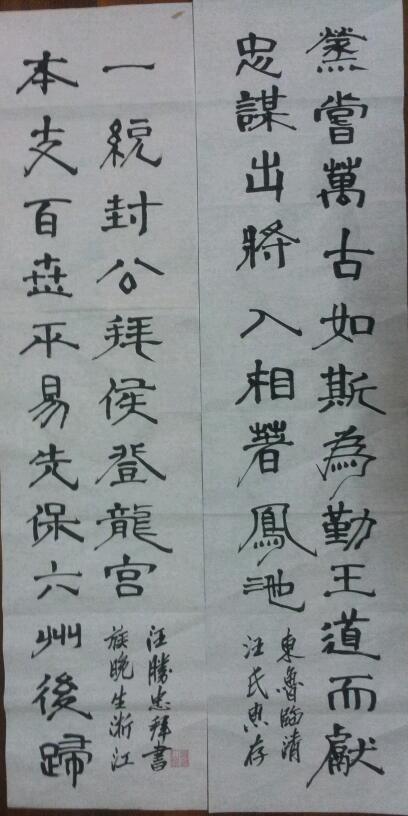 蒸嘗萬古如斯為勤王道而獻
忠謀出將入相著鳳池
東魯臨清
汪氏惠存
本支百世平易先保六州後歸
一統封公拜侯登龍宮
族晚生浙江
汪勝忠拜書